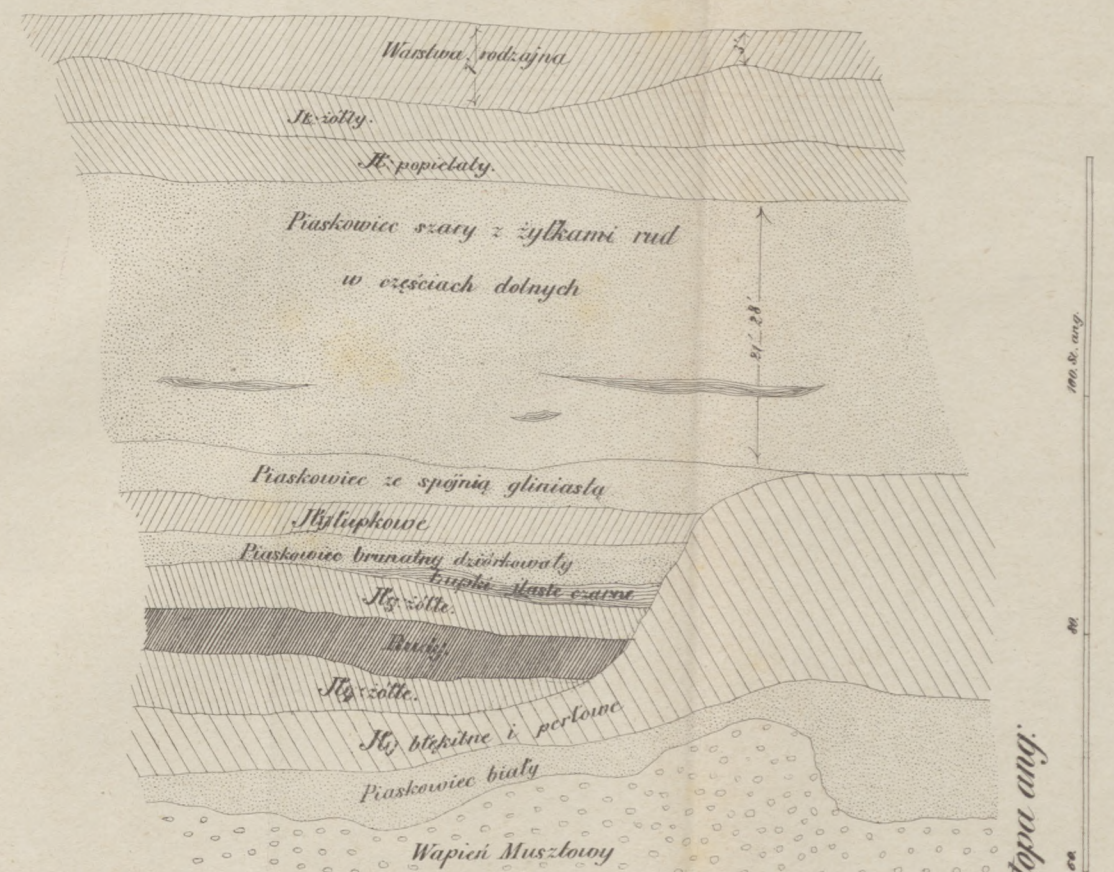 Warstwa rodzajna
3'
Ił żółty.
Ił popielaty.
Piaskowiec szary z żyłkami rud
w częściach dolnych
21'–28'
100. St. ang.
Piaskowiec ze spójnią gliniastą
Iły łupkowe
Piaskowiec brunatny dziórkowaty
Łupki ilaste czarne
Iły żółte.
80.
Rudy.
Iły żółte.
Iły błękitne i perłowe
Piaskowiec biały
topa ang:
Wapień Muszlowy
60.